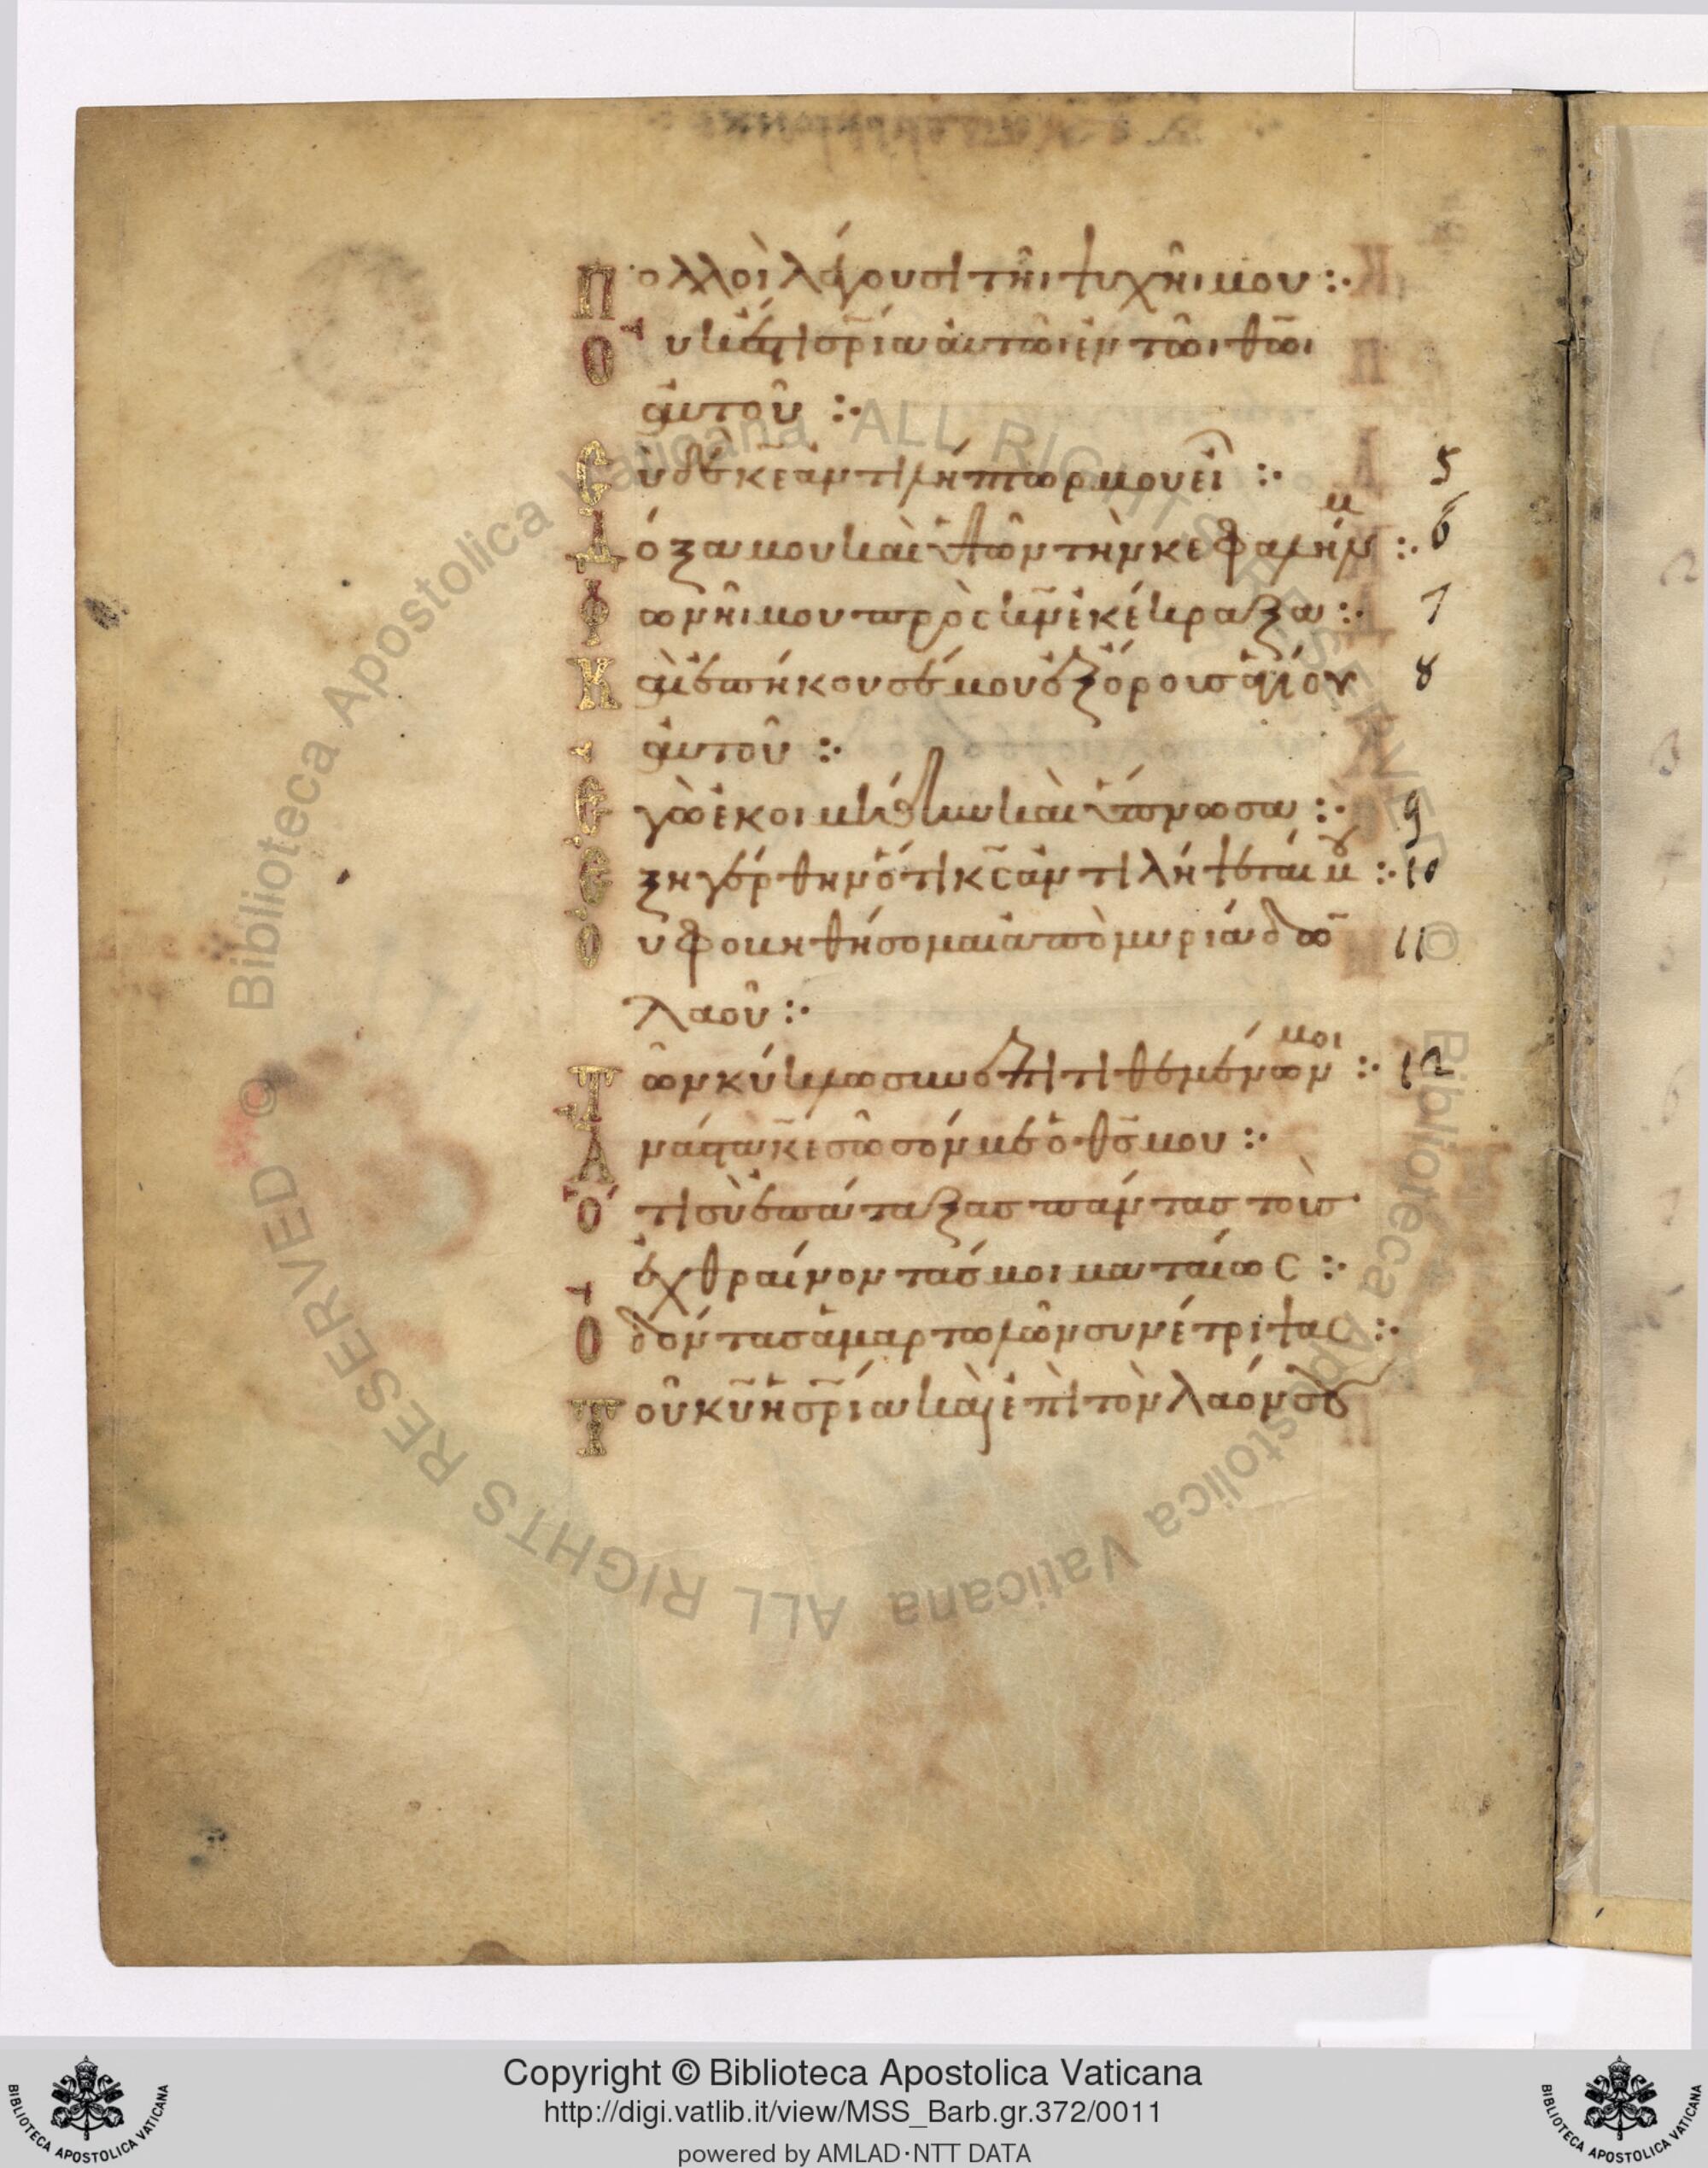 Πολλοὶ λέγουσι τῆι ψυχῆι μου :·
Οὐκ ἔστι σ̅ρ̅ία αὐτῶι ἐν τῶι θ̅ω̅ι
αὐτοῦ :·
Σὺ δὲ κ̅ε̅ ἀντιλήπτωρ μου εἶ :· 5
Δόξα μου καὶ ὑψῶν τὴν κεφαλήν μ :· 6
Φωνῆι μου πρὸς κ̅ν̅ ἐκέκραξα :· 7
Καὶ ἐπήκουσέ μου ἐξ ὄρους ἁγίου 8
αὐτοῦ :·
Ἐγὼ ἐκοιμήθην καὶ ὕπνωσα :· 9
Ἐξηγέρθην ὅτι κ̅ς̅ ἀντιλήψεταί μου :· 10
Οὐ φοβηθήσομαι ἀπὸ μυριάδω̅ 11
λαοῦ :·
Τῶν κύκλωι συνεπιτιθεμένων μοι :· 12
Ἀνάστα κ̅ε̅ σῶσόν με ὁ θ̅ς̅ μου :·
Ὅτι σὺ ἐπάταξας πάντας τοὺς
ἐχθραίνοντάς μοι ματαίως :·
Ὀδόντας ἁμαρτωλῶν συνέτριψας :·
Τοῦ κ̅υ̅ ἡ σ̅ρ̅ία καὶ ἐπὶ τὸν λαόν σου
Biblioteca Apostolica Vaticana ALL RIGHTS RESERVED ©
Biblioteca Apostolica Vaticana ALL RIGHTS RESERVED ©
Copyright © Biblioteca Apostolica Vaticana
http://digi.vatlib.it/view/MSS_Barb.gr.372/0011
powered by AMLAD·NTT DATA
BIBLIOTECA APOSTOLICA VATICANA
BIBLIOTECA APOSTOLICA VATICANA